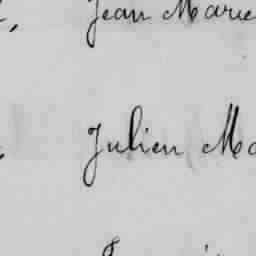 Jean Marie
Julien Ma